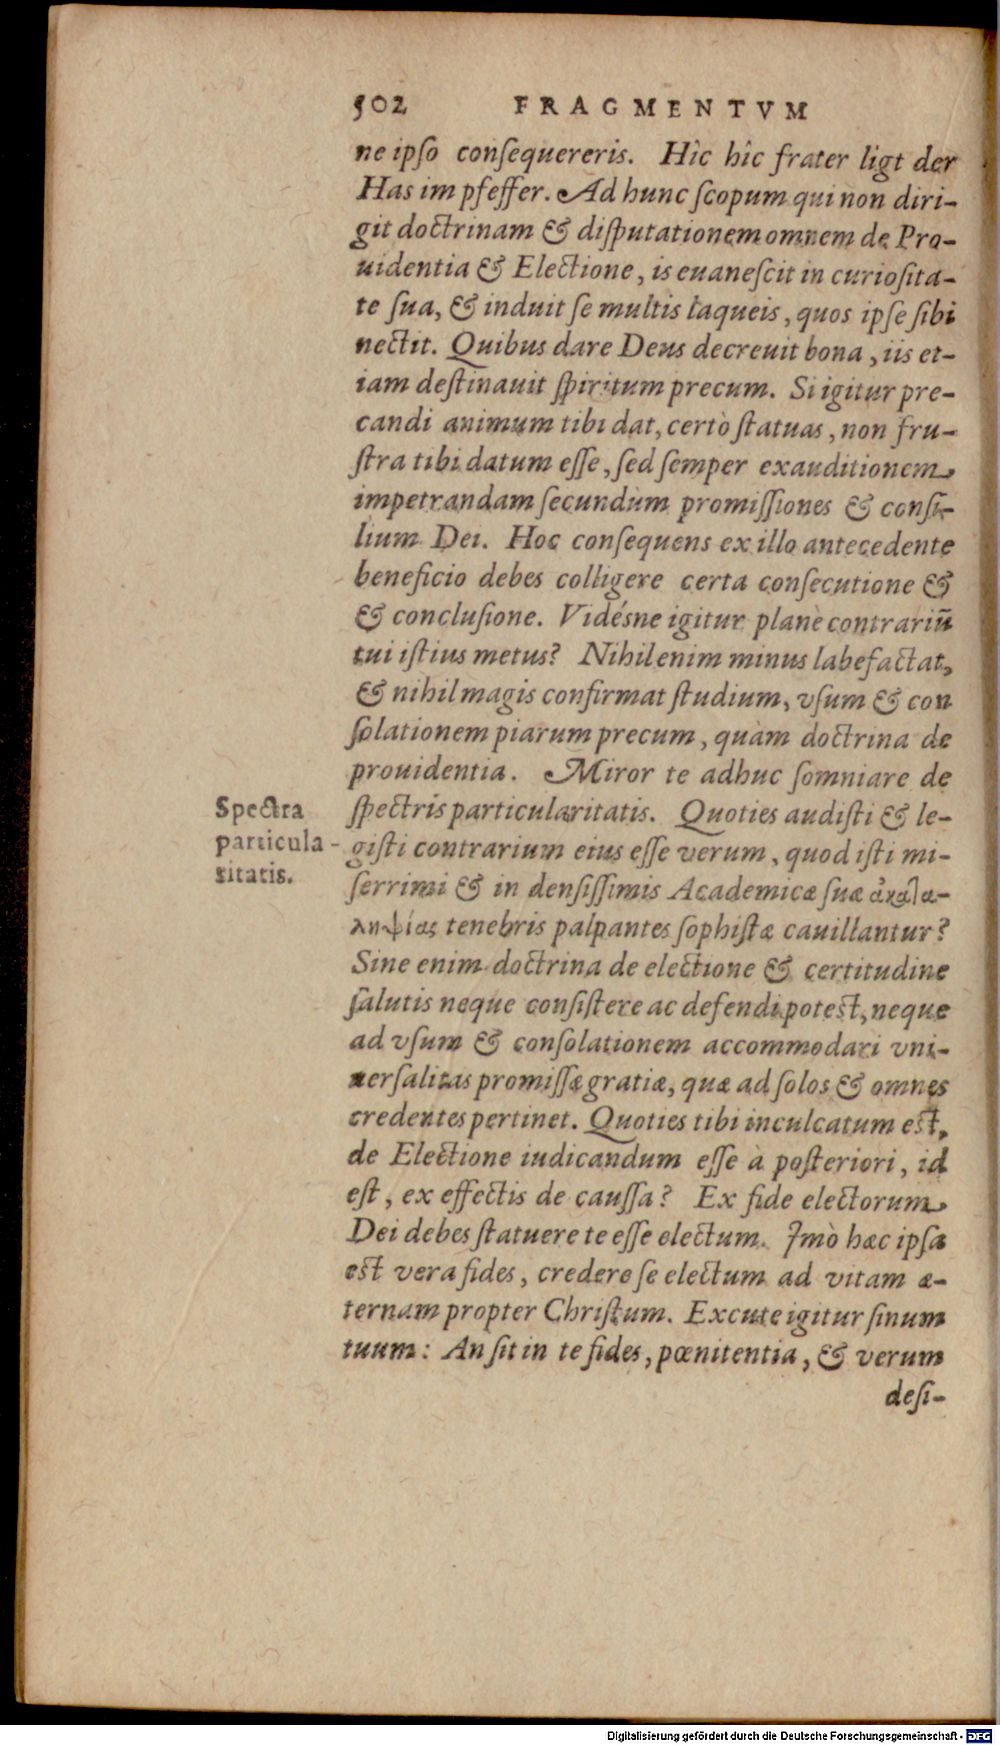 502 FRAGMENTVM
ne ipſo conſequereris. Hîc hîc frater ligt der
Has im pfeffer. Ad hunc ſcopum qui non diri-
git doctrinam & diſputationem omnem de Pro-
uidentia & Electione, is euaneſcit in curioſita-
te ſua, & induit ſe multis laqueis, quos ipſe ſibi
nectit. Quibus dare Deus decreuit bona, iis et-
iam deſtinauit ſpiritum precum. Si igitur pre-
candi animum tibi dat, certò ſtatuas, non fru-
ſtra tibi datum eſſe, ſed ſemper exauditionem
impetrandam ſecundùm promiſſiones & conſi-
lium Dei. Hoc conſequens ex illo antecedente
beneficio debes colligere certa conſecutione &
& concluſione. Vidésne igitur planè contrariũ
tui iſtius metus? Nihil enim minus labefactat,
& nihil magis confirmat ſtudium, vſum & con
ſolationem piarum precum, quàm doctrina de
prouidentia. Miror te adhuc ſomniare de
Spectra
particula-
ritatis.
ſpectris particularitatis. Quoties audiſti & le-
giſti contrarium eius eſſe verum, quod iſti mi-
ſerrimi & in denſiſſimis Academicæ ſuæ ἀκατα-
ληψίας tenebris palpantes ſophiſtæ cauillantur?
Sine enim doctrina de electione & certitudine
ſalutis neque conſiſtere ac defendi poteſt, neque
ad vſum & conſolationem accommodari vni-
uerſalitas promiſſæ gratiæ, quæ ad ſolos & omnes
credentes pertinet. Quoties tibi inculcatum eſt,
de Electione iudicandum eſſe à poſteriori, id
eſt, ex effectis de cauſſa? Ex fide electorum
Dei debes ſtatuere te eſſe electum. Imò hæc ipſa
eſt vera fides, credere ſe electum ad vitam æ-
ternam propter Chriſtum. Excute igitur ſinum
tuum: An ſit in te fides, pœnitentia, & verum
deſi-
Digitalisierung gefördert durch die Deutsche Forschungsgemeinschaft - DFG